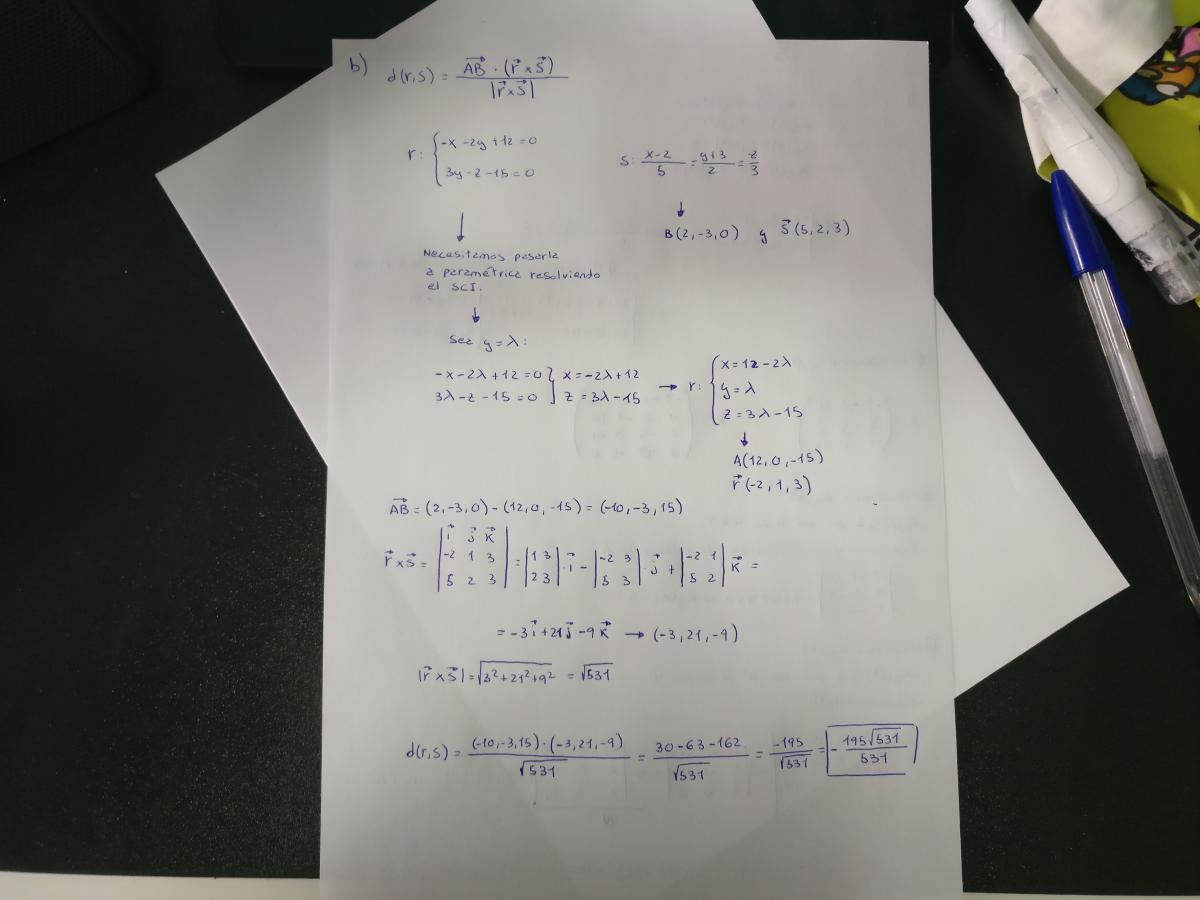 b) d(r,s) = AB⃗ · (r⃗ × s⃗) / |r⃗ × s⃗|
r: { -x - 2y + 12 = 0
3y - z - 15 = 0
s: (x-2)/5 = (y+3)/2 = z/3
↓
B(2,-3,0) y s⃗(5,2,3)
↓
Necesitamos pasarla
a paramétrica resolviendo
el SCI.
↓
Sea y = λ:
-x - 2λ + 12 = 0 } x = -2λ + 12
3λ - z - 15 = 0 } z = 3λ - 15
→ r: { x = 12 - 2λ
y = λ
z = 3λ - 15
↓
A(12,0,-15)
r⃗(-2,1,3)
AB⃗ = (2,-3,0) - (12,0,-15) = (-10,-3,15)
r⃗ × s⃗ = |i⃗ j⃗ k⃗; -2 1 3; 5 2 3| = |1 3; 2 3| · i⃗ - |-2 3; 5 3| · j⃗ + |-2 1; 5 2| k⃗ =
= -3i⃗ + 21j⃗ - 9k⃗ → (-3,21,-9)
|r⃗ × s⃗| = √(3² + 21² + 9²) = √531
d(r,s) = (-10,-3,15) · (-3,21,-9) / √531 = (30 - 63 - 162) / √531 = -195 / √531 = - 195√531 / 531